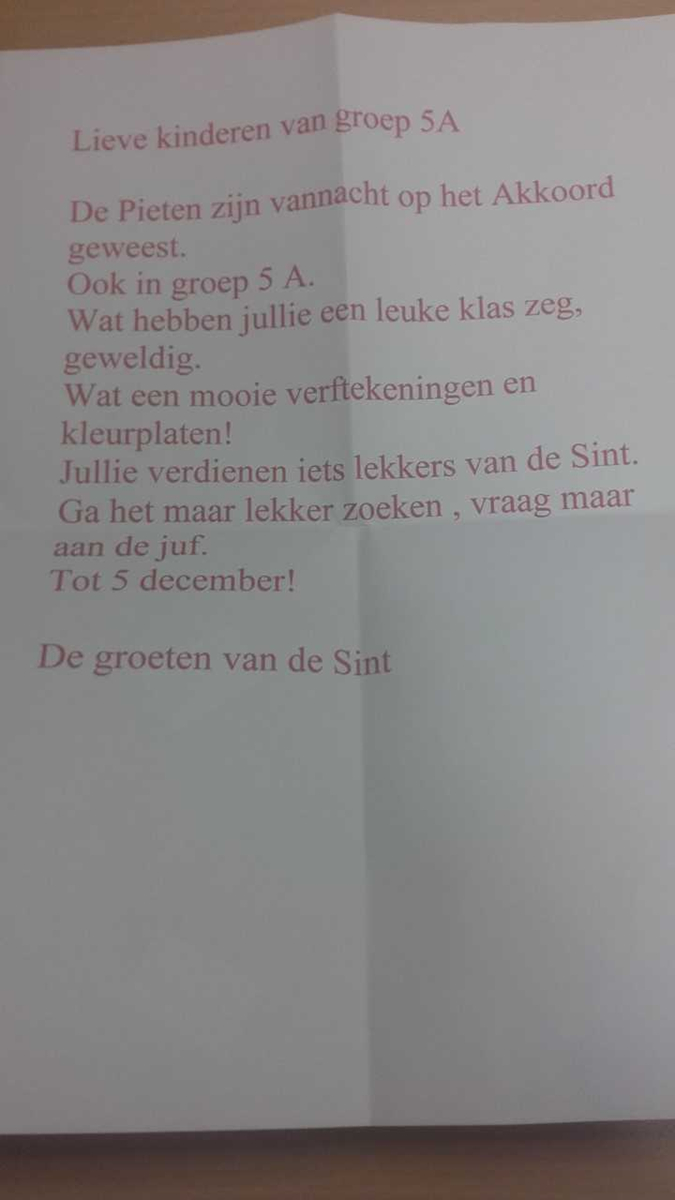 Lieve kinderen van groep 5A
De Pieten zijn vannacht op het Akkoord
geweest.
Ook in groep 5 A.
Wat hebben jullie een leuke klas zeg,
geweldig.
Wat een mooie verftekeningen en
kleurplaten!
Jullie verdienen iets lekkers van de Sint.
Ga het maar lekker zoeken , vraag maar
aan de juf.
Tot 5 december!
De groeten van de Sint